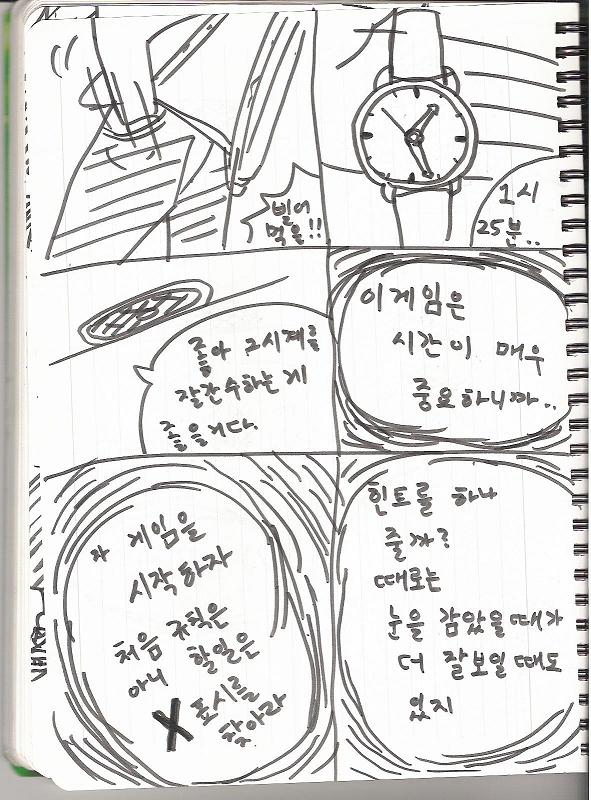 빌어
먹을!!
1시
25분..
좋아 그시계를
잘간수하는게
좋을거다.
이게임은
시간이 매우
중요하니까..
자 게임을
시작하자
처음 규칙은
아니 할일은
X 표시를
찾아라
힌트를 하나
줄까?
때로는
눈을 감았을때가
더 잘보일때도
있지